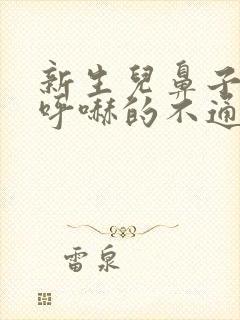 新生兒鼻子
呼嚇的不通
雷泉